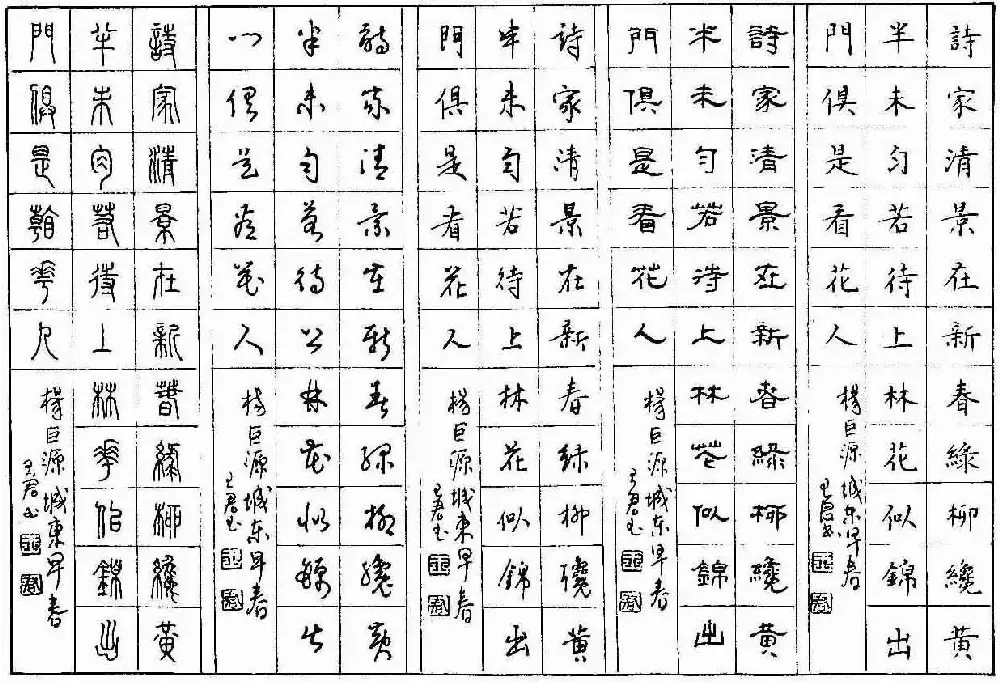 詩家清景在新春綠柳纔黃
半未勻若待上林花似錦出
門俱是看花人
楊巨源城东早春
王君书
詩家清景在新春綠柳纔黃
半未勻若待上林花似錦出
門俱是看花人
楊巨源城东早春
王君书
詩家清景在新春綠柳纔黃
半未勻若待上林花似錦出
門俱是看花人
楊巨源城東早春
王君书
詩家清景在新春綠柳纔黃
半未勻若待上林花似錦出
門俱是看花人
楊巨源城东早春
王君书
詩家清景在新春綠柳纔黃
半未勻若待上林花似錦出
門俱是看花人
楊巨源城東早春
王君书